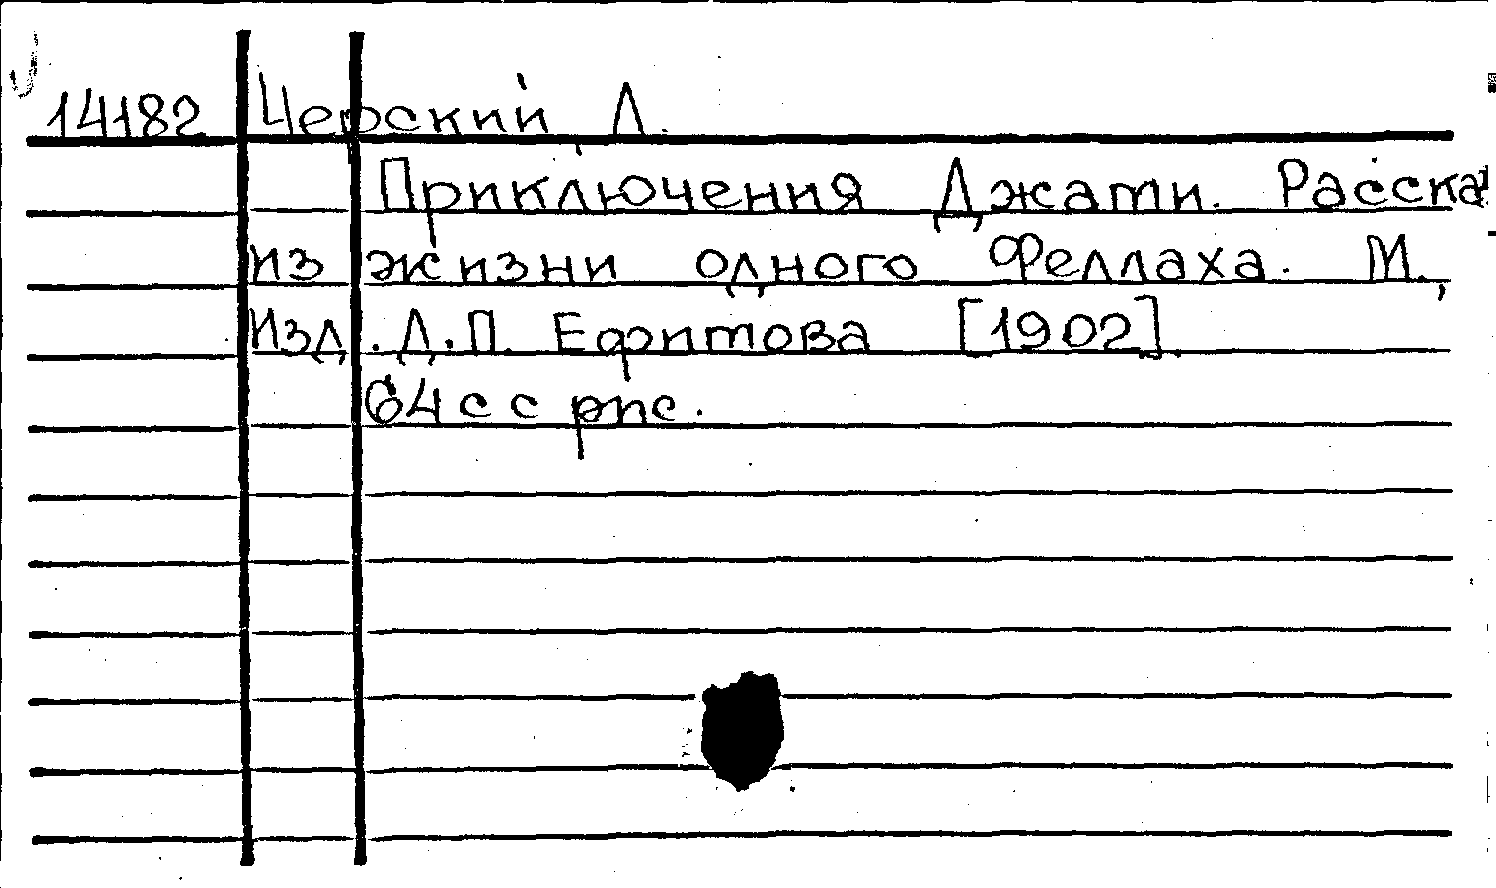 14182 Черский, Л.
Приключения Джати. Расска
из жизни одного Феллаха. М.,
Изд. Д. П. Ефимова [1902].
64 с с рис.